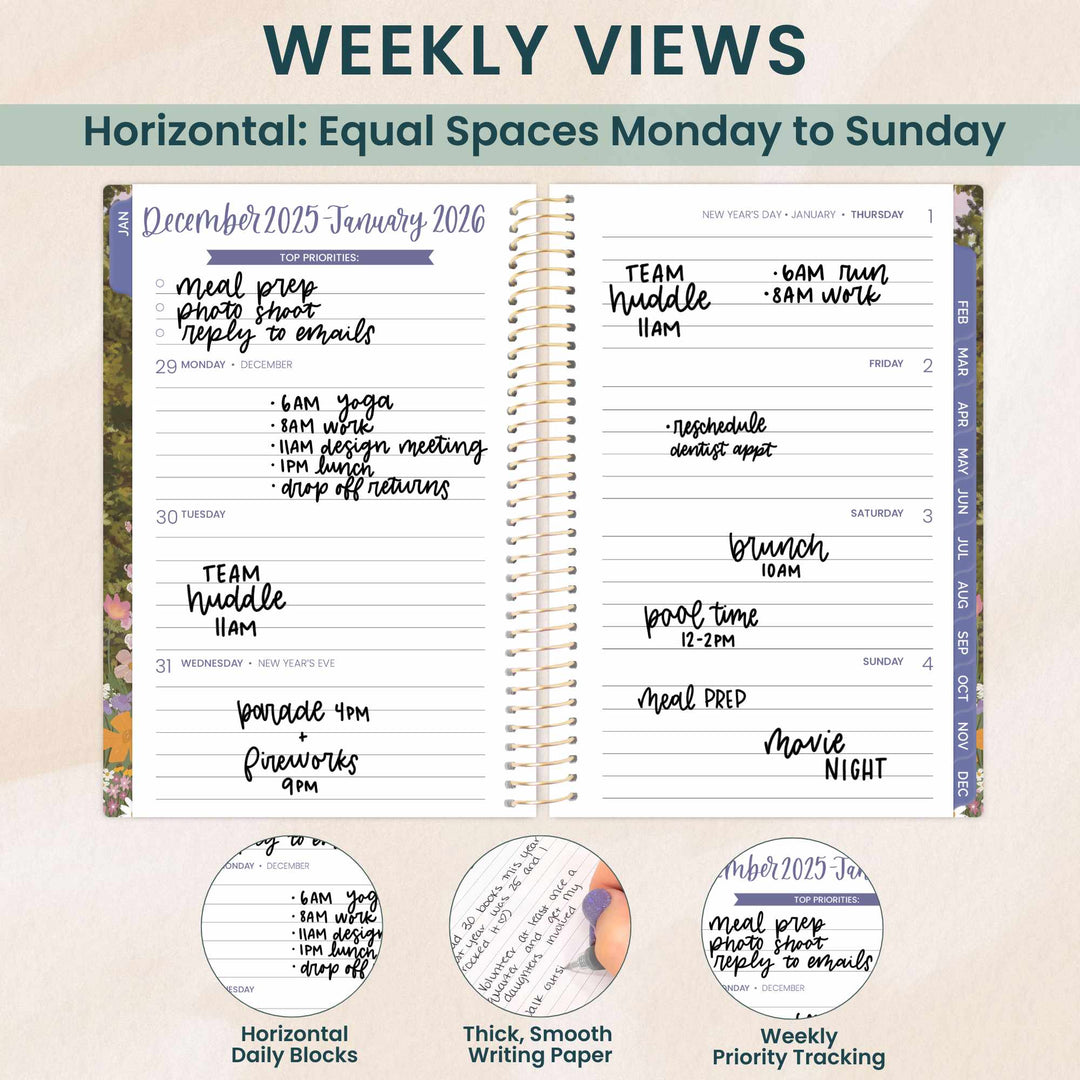 WEEKLY VIEWS
Horizontal: Equal Spaces Monday to Sunday
JAN
December 2025-January 2026
TOP PRIORITIES:
meal prep
photo shoot
reply to emails
29 MONDAY • DECEMBER
• 6AM yoga
• 8AM work
• 11AM design meeting
• 1PM lunch
• drop off returns
30 TUESDAY
TEAM
huddle
11AM
31 WEDNESDAY • NEW YEAR'S EVE
parade 4PM
+
fireworks
9PM
NEW YEAR'S DAY • JANUARY • THURSDAY 1
TEAM
huddle
11AM
• 6AM run
• 8AM work
FRIDAY 2
• reschedule
dentist appt
SATURDAY 3
brunch
10AM
pool time
12-2PM
SUNDAY 4
meal PREP
movie
NIGHT
FEB
MAR
APR
MAY
JUN
JUL
AUG
SEP
OCT
NOV
DEC
ONDAY • DECEMBER
• 6AM yog
• 8AM work
• 11AM design
• 1PM lunch
• drop off
UESDAY
Horizontal
Daily Blocks
30 books this year
year was 25 and I
rocked it
Volunteer at least once a
quarter and get my
daughters involved
Thick, Smooth
Writing Paper
mber 2025-Jan
TOP PRIORITIES:
meal prep
photo shoot
reply to emails
NDAY • DECEMBER
Weekly
Priority Tracking